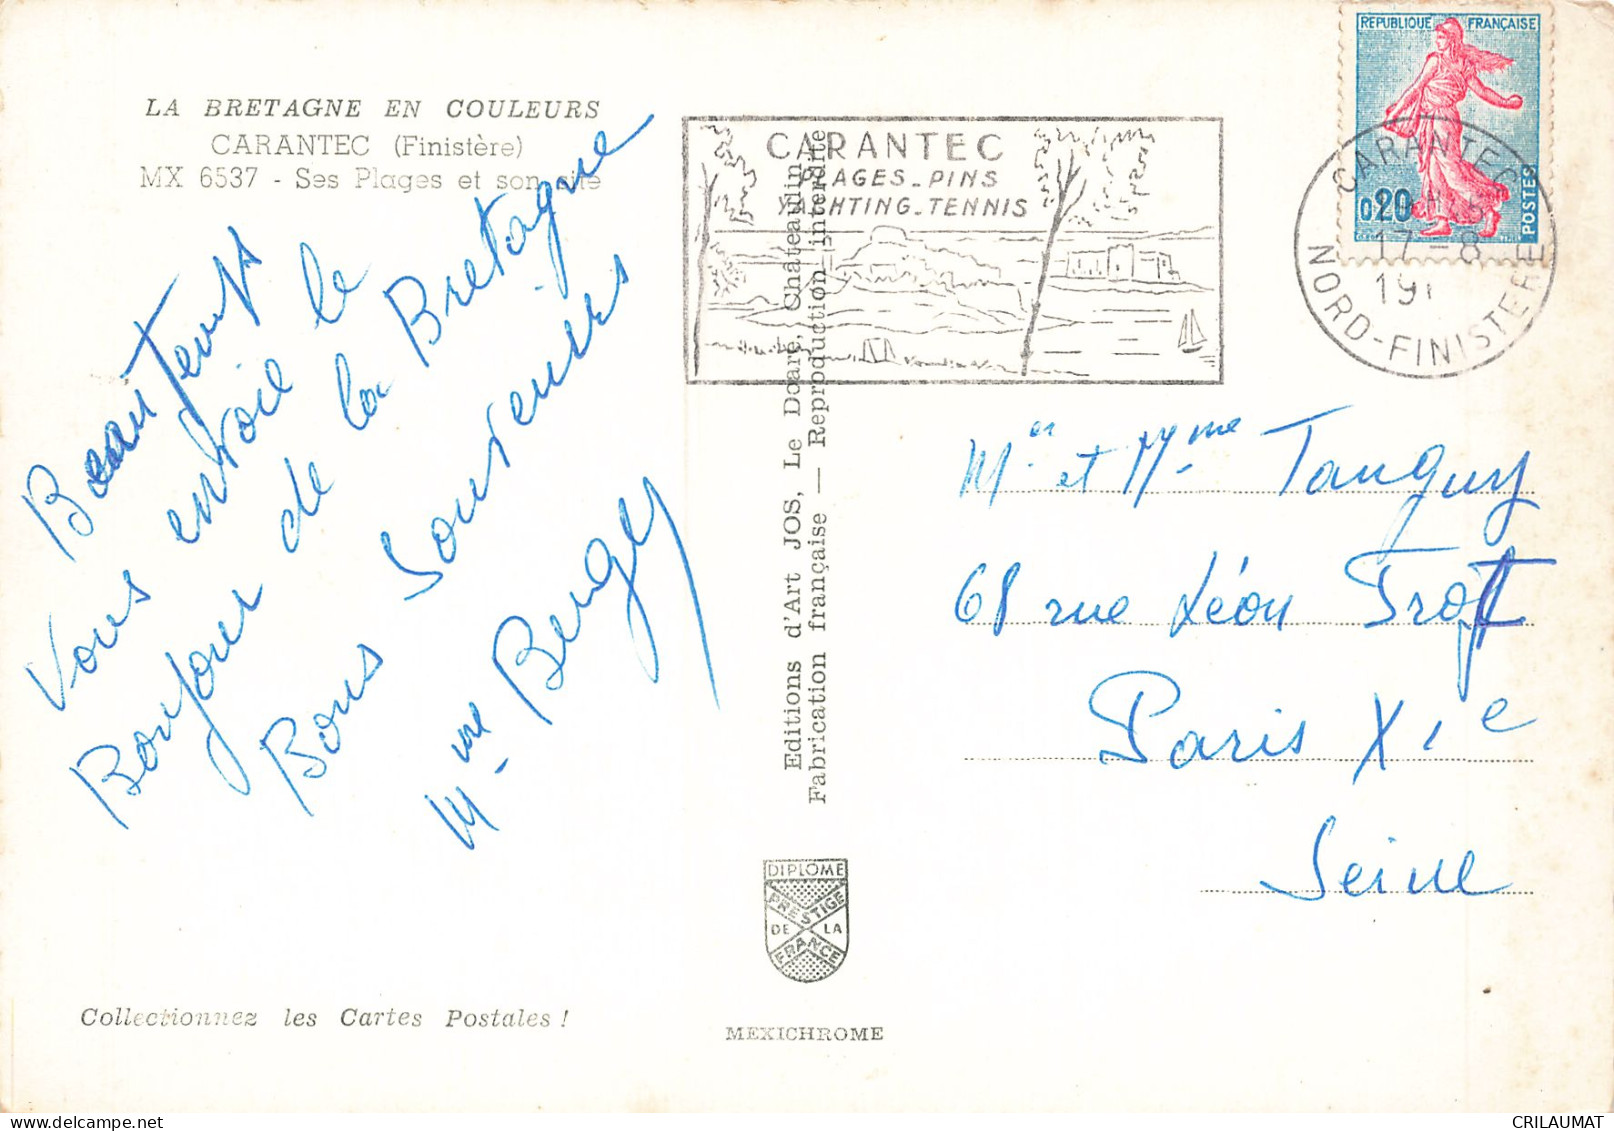 LA BRETAGNE EN COULEURS
CARANTEC (Finistère)
MX 6537 - Ses Plages et son site
Beau Temps
Vous envoie le
Bonjour de la Bretagne
Bons Souvenirs
Mme
CARANTEC
PLAGES-PINS
YACHTING-TENNIS
Editions d'Art JOS, Le Doaré, Châteaulin
Fabrication française — Reproduction interdite
REPUBLIQUE FRANÇAISE
0,20
POSTES
CARANTEC
17-8
NORD-FINISTERE
Mer et Mme Tanguy
68 rue Léon Frot
Paris XIe
Seine
DIPLOME
PRESTIGE
DE LA
FRANCE
Collectionnez les Cartes Postales !
MEXICHROME
CRILAUMAT